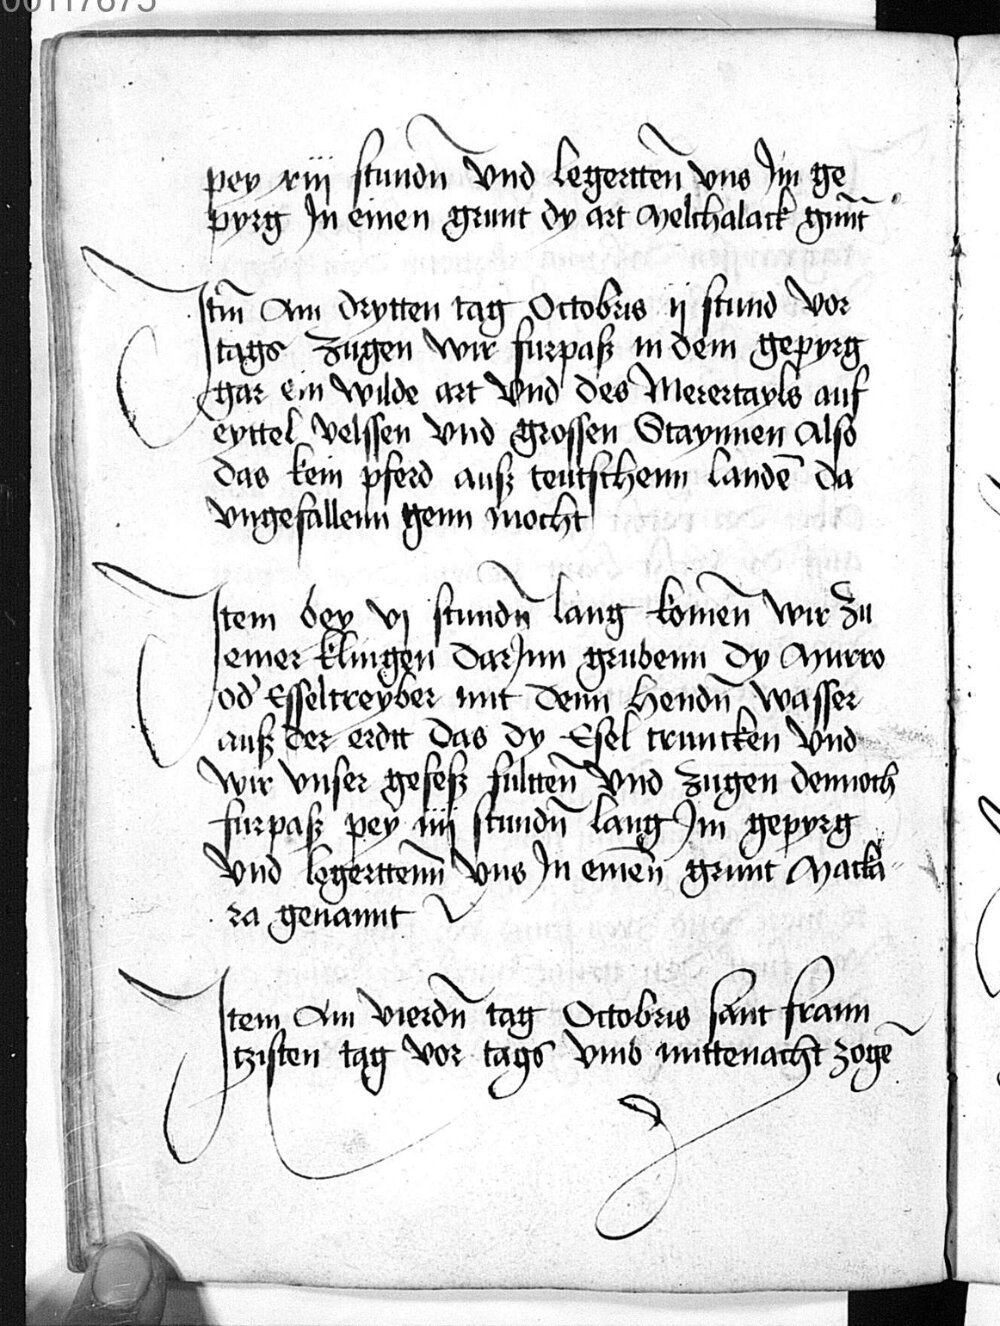 00117675
pey xiij stundn̄ vnd legertten̄ vns Jm ge
pyrg Jn einen grunt dy art Melchalack gnn̄t
Itm̄ Am drytten tag Octobris ij stund vor
tags zugen wir furpaß in dem gepyrg
gar ein wilde art vnd des Merertayls auf
eyttel velssen vnd grossen Staynnen Also
das kein pferd auß teutschenn landē da
vngefallenn genn mocht
Item bey vj stundn̄ lang komen̄ wir zu
einer klingen darJnn grubenn dy Murro
od' Esseltreyber mit denn hendn̄ wasser
auß der erdtt das dy Esel truncken vnd
wir vnser gefeß fultten̄ vnd zugen dennoch
furpaß pey iiij stundn̄ lang Jm gepyrg
vnd legerttenn̄ vns Jn einen̄ grunt Macka
ra genannt
Item Am vierdn̄ tag Octobris sant frann
tzisten tag vor tags vmb mittenacht zogē